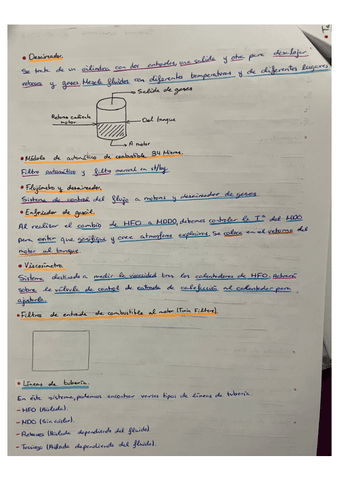 • Desaireador.
Se trata de un cilindro con dos entradas, una salida y otra para desalojar
rebose y gases. Mezcla fluidos con diferentes temperaturas y de diferentes lugares
Salida de gases
Retorno caliente
motor
Del tanque
A motor
• Módulo de automático de combustible 34 Micras.
Filtro automático y filtro manual en st/by.
• Flujómetro y desaireador.
Sistema de control del flujo a motores y desaireador de gases
• Enfriador de gasoil.
Al realizar el cambio de HFO a MDO, debemos controlar la Tª del MDO
para evitar que gasifique y cree atmósferas explosivas. Se coloca en el retorno del
motor al tanque.
• Viscosímetro.
Sistema destinado a medir la viscosidad tras los calentadores de HFO. Actuará
sobre la válvula de control de entrada de calefacción al calentador para
ajustarla.
• Filtros de entrada de combustible al motor (Twin Filters).
• Líneas de tubería.
En éste sistema, podemos encontrar varios tipos de líneas de tubería.
- HFO (Aislada).
- MDO (Sin aislar).
- Retornos (Aislada dependiendo del fluido).
- Trasiego (Aislada dependiendo del fluido).